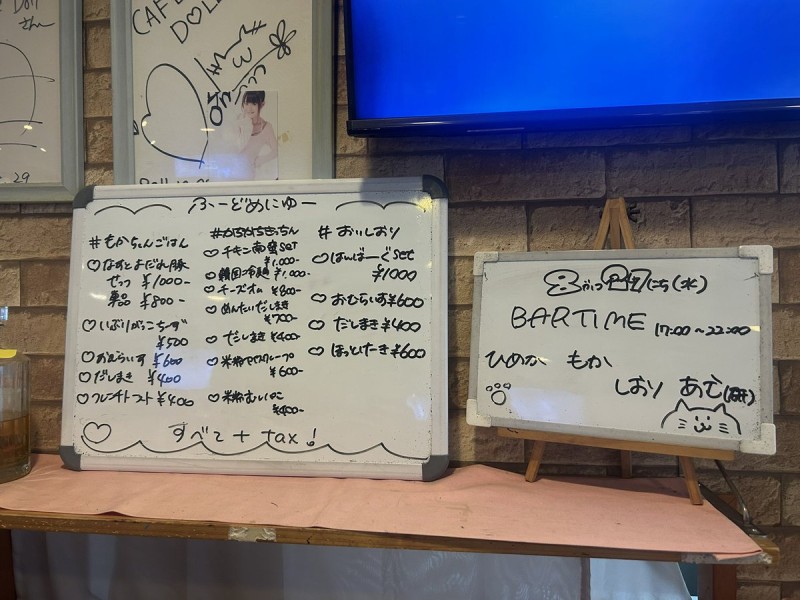 CAFE
DOLL
29
ふーどめにゅー
#もかちゃんごはん
♡なすとよだれ豚
せっつ ¥1000-
単品 ¥800-
♡いぶりがっこちーず
¥500
♡おむらいす ¥600
♡だしまき ¥400
♡フレンチトースト ¥400
♡チキン南蛮set
¥1,000-
♡韓国冷麺 ¥1,000-
♡チーズオム ¥800-
♡めんたいだしまき
¥700-
♡だしまき ¥400-
♡米粉
¥600-
♡米粉
¥400-
#おいしおり
♡はんばーぐset
¥1000
♡おむらいす¥600
♡だしまき ¥400
♡ほっとけーき¥600
すべて + tax!
8がつ27にち(水)
BARTIME 17:00~22:00
ひめか もか
しおり